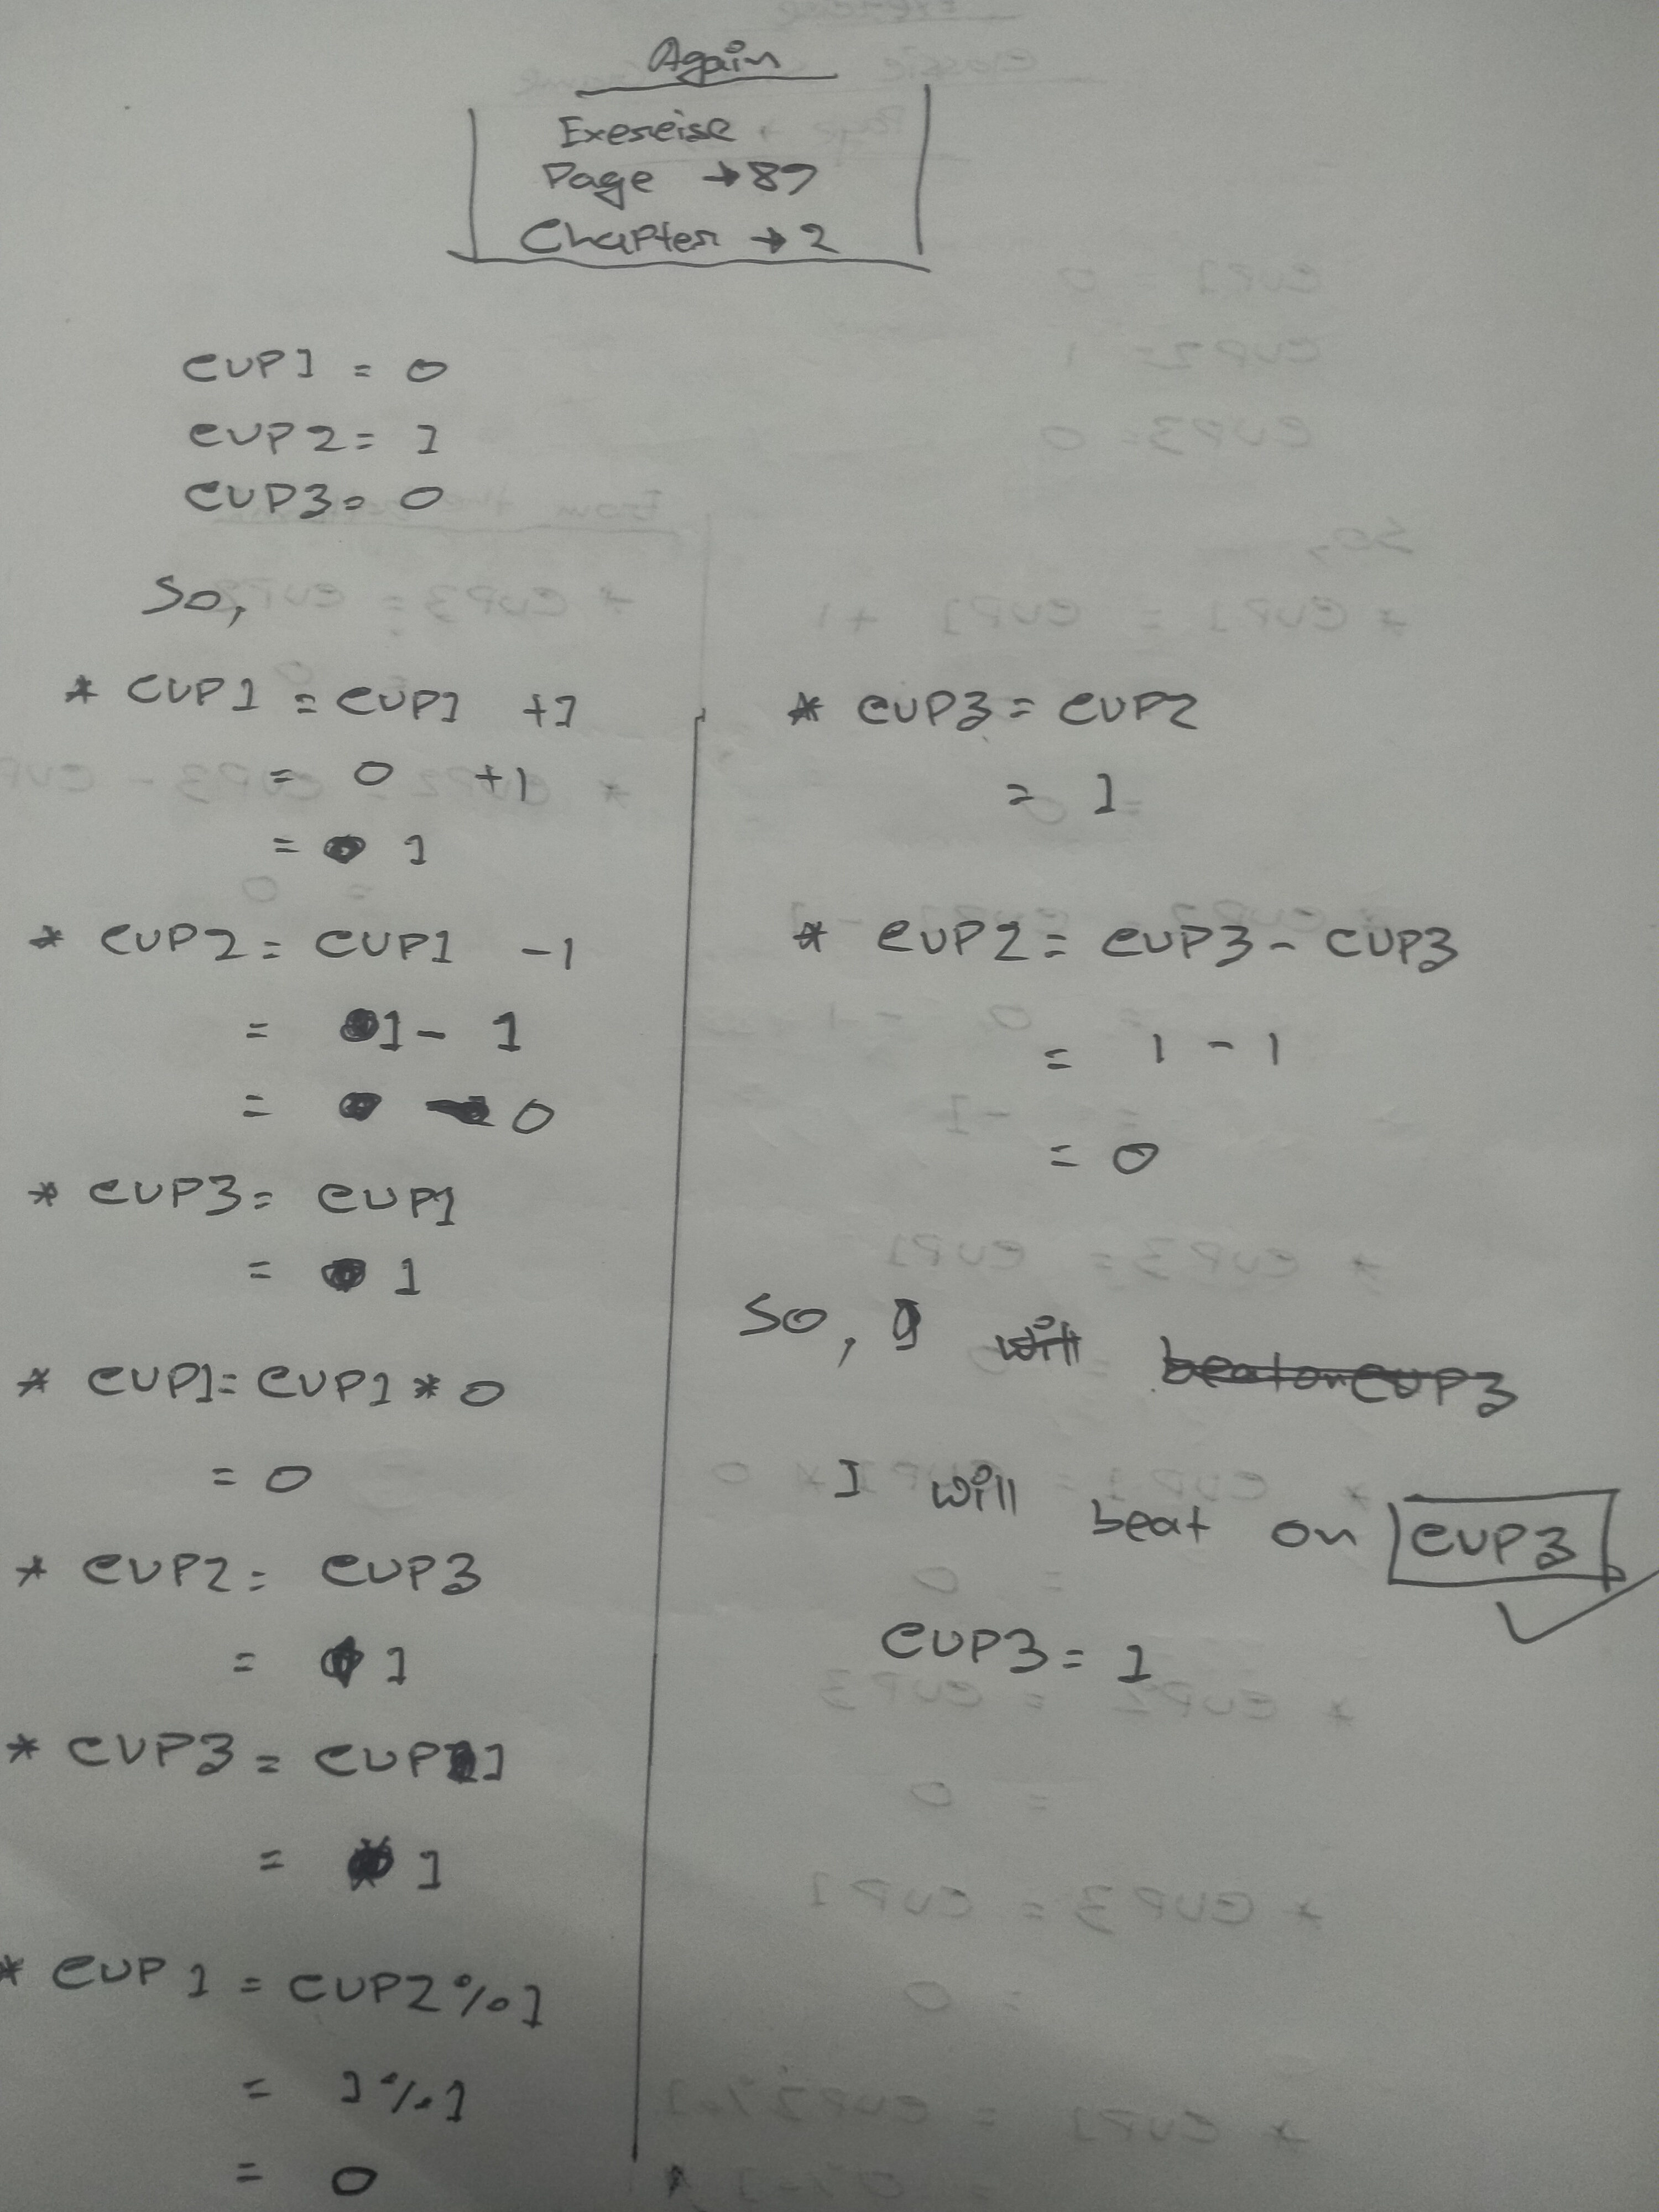 Again
Exercise
Page → 89
Chapter → 2
CUP1 = 0
CUP2 = 1
CUP3 = 0
So,
* CUP1 = CUP1 +1
= 0 +1
= 1
* CUP2 = CUP1 -1
= 1 - 1
= 0
* CUP3 = CUP1
= 1
* CUP1 = CUP1 * 0
= 0
* CUP2 = CUP3
= 1
* CUP3 = CUP1
= 1
* CUP1 = CUP2%1
= 1%1
= 0
* CUP3 = CUP2
= 1
* CUP2 = CUP3 - CUP3
= 1 - 1
= 0
So, I will beat on CUP3
I will beat on CUP3
CUP3 = 1